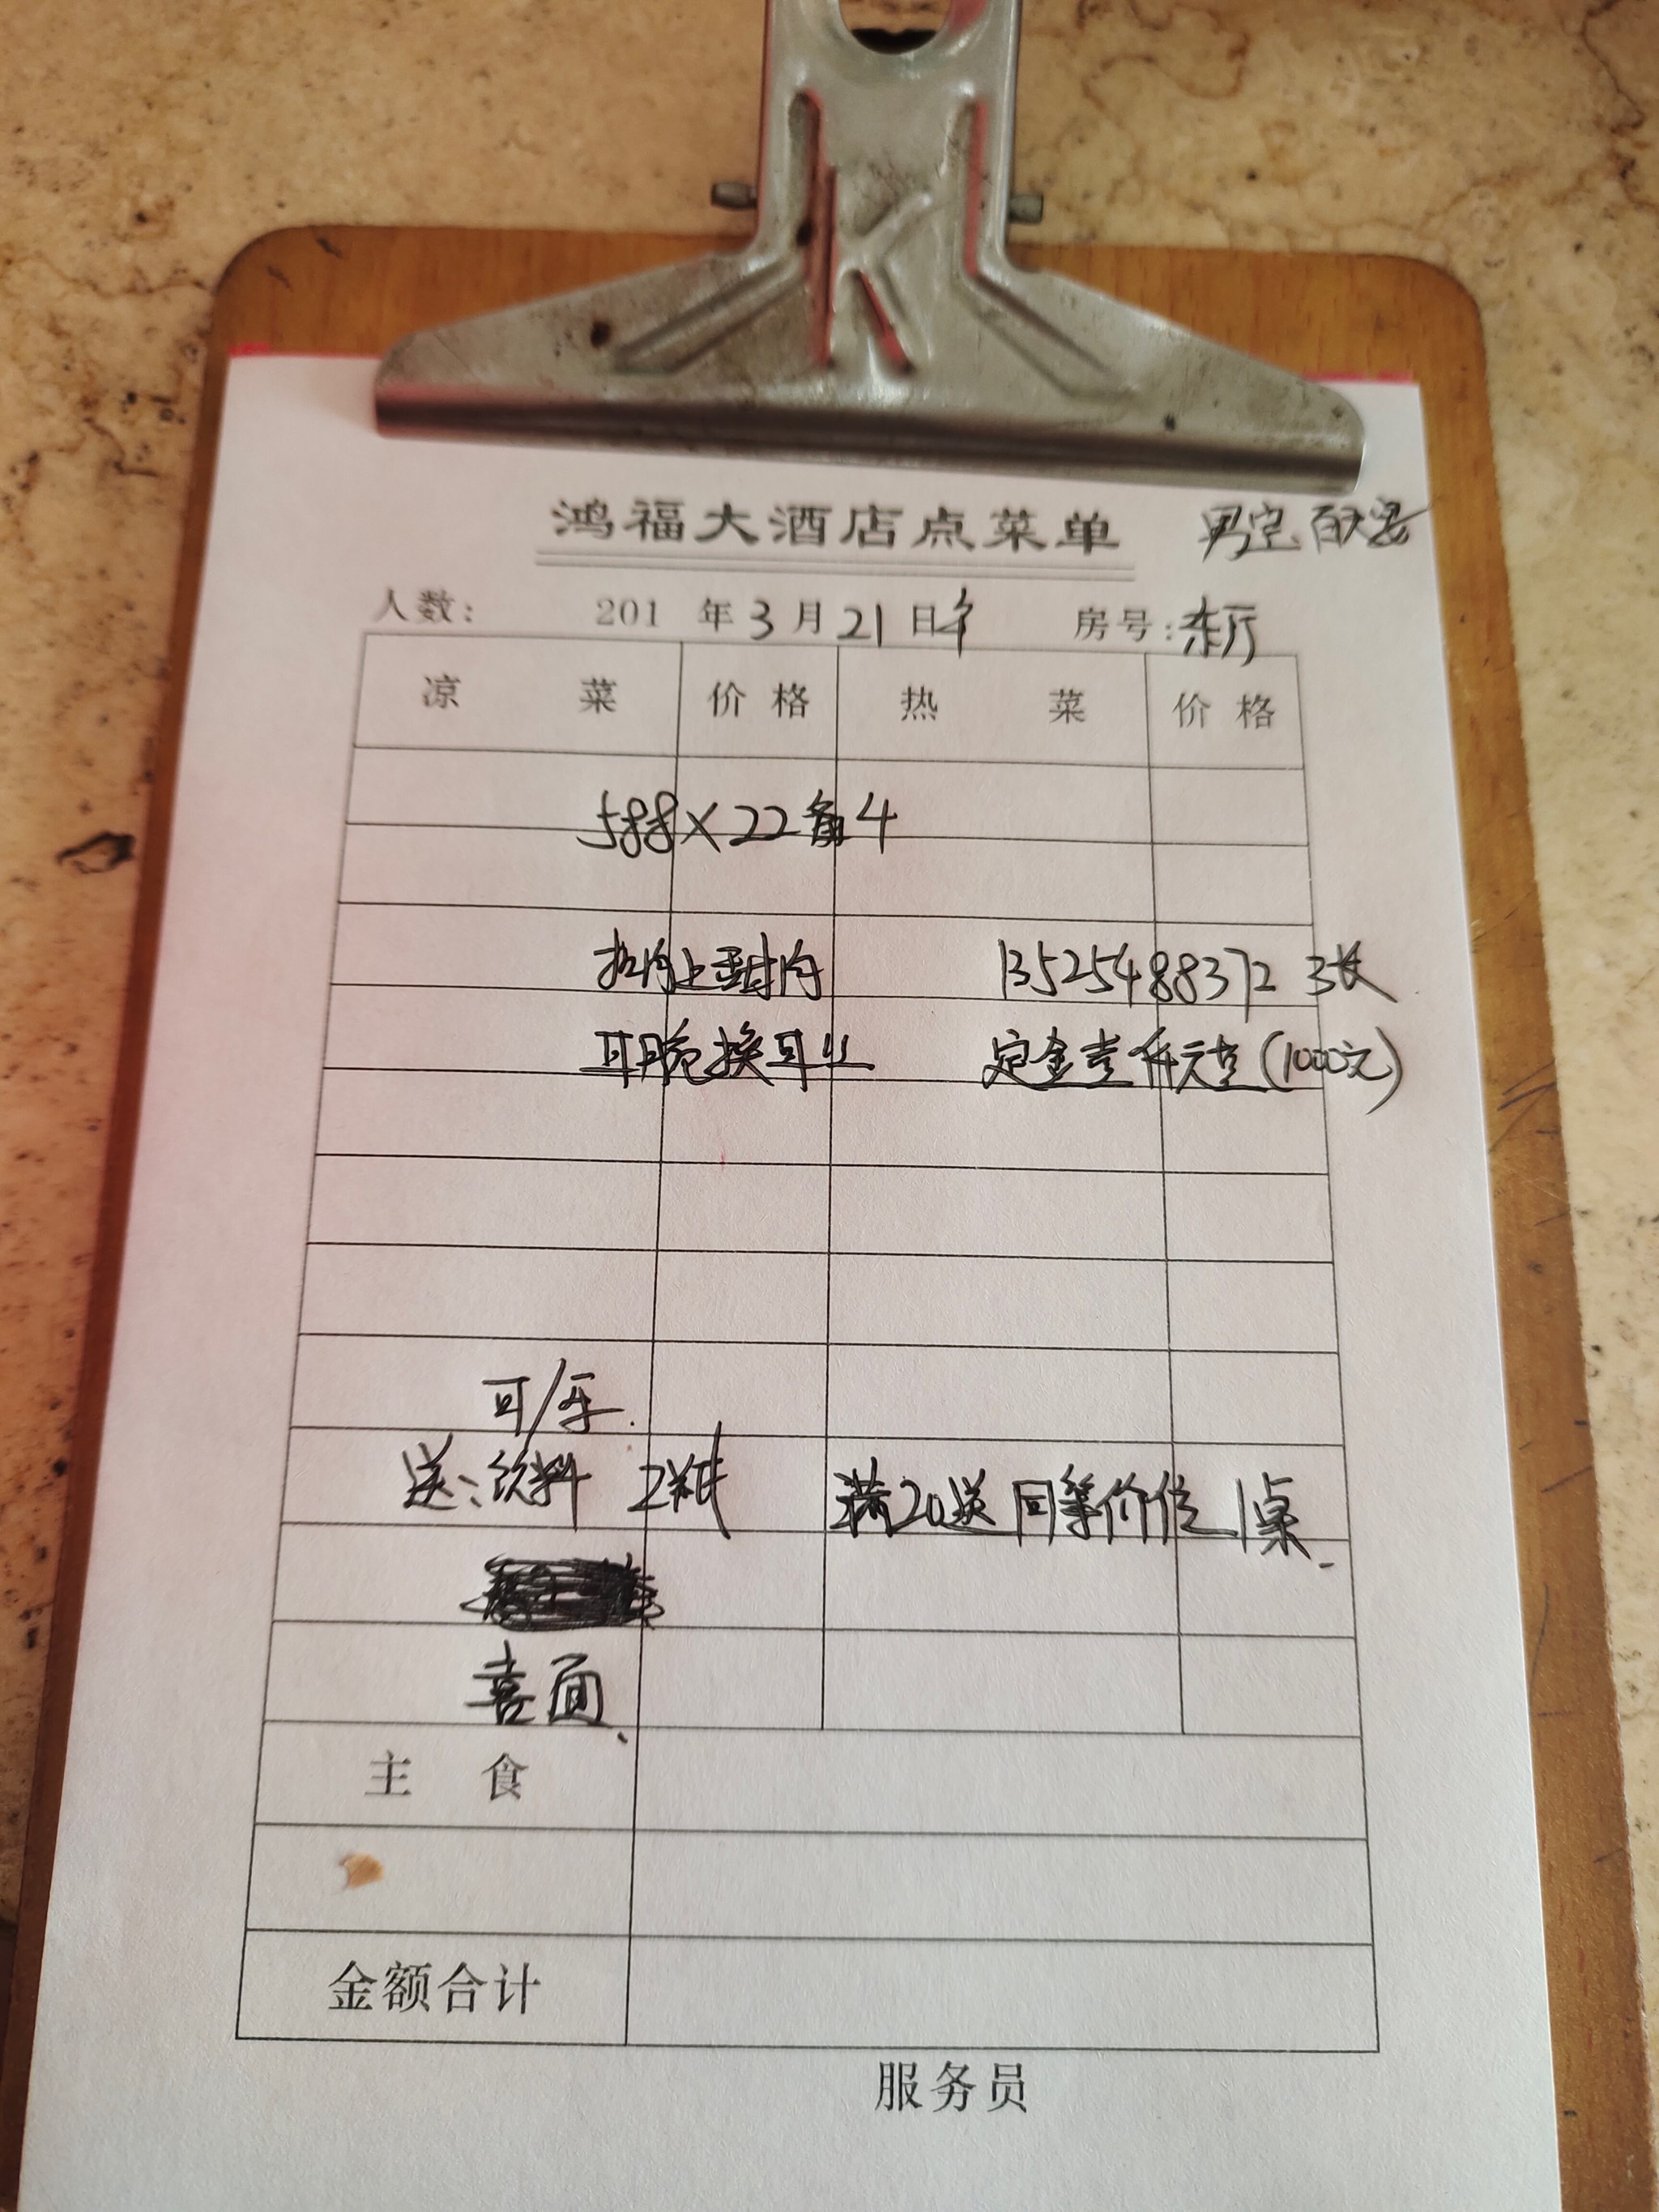 鸿福大酒店点菜单 男宝百天宴
人数： 201 年3月21日午 房号：东厅
凉 菜 价格 热 菜 价格
588×22备4
扣肉上甜肉 13525488372
耳脆换耳丝 定金壹仟元垫(1000元)
可/乐.
送：饮料 2瓶 满20送同等价位1桌.
喜面、
主 食
金额合计
服务员